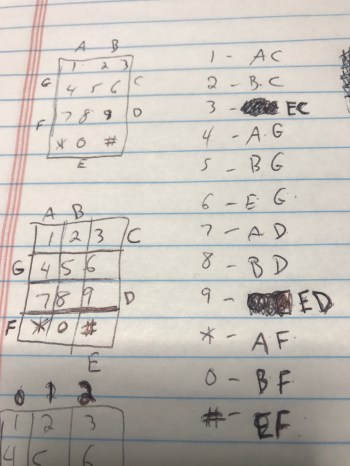 A B
1 2 3
G 4 5 6 C
F 7 8 9 D
* 0 #
E
A B
1 2 3 C
G 4 5 6
7 8 9 D
F * 0 #
E
0 1 2
1 2 3
4 5 6
1 - AC
2 - B.C
3 - EC
4 - A.G
5 - BG
6 - E.G.
7 - AD
8 - BD
9 - ED
* - AF
0 - BF
# - EF